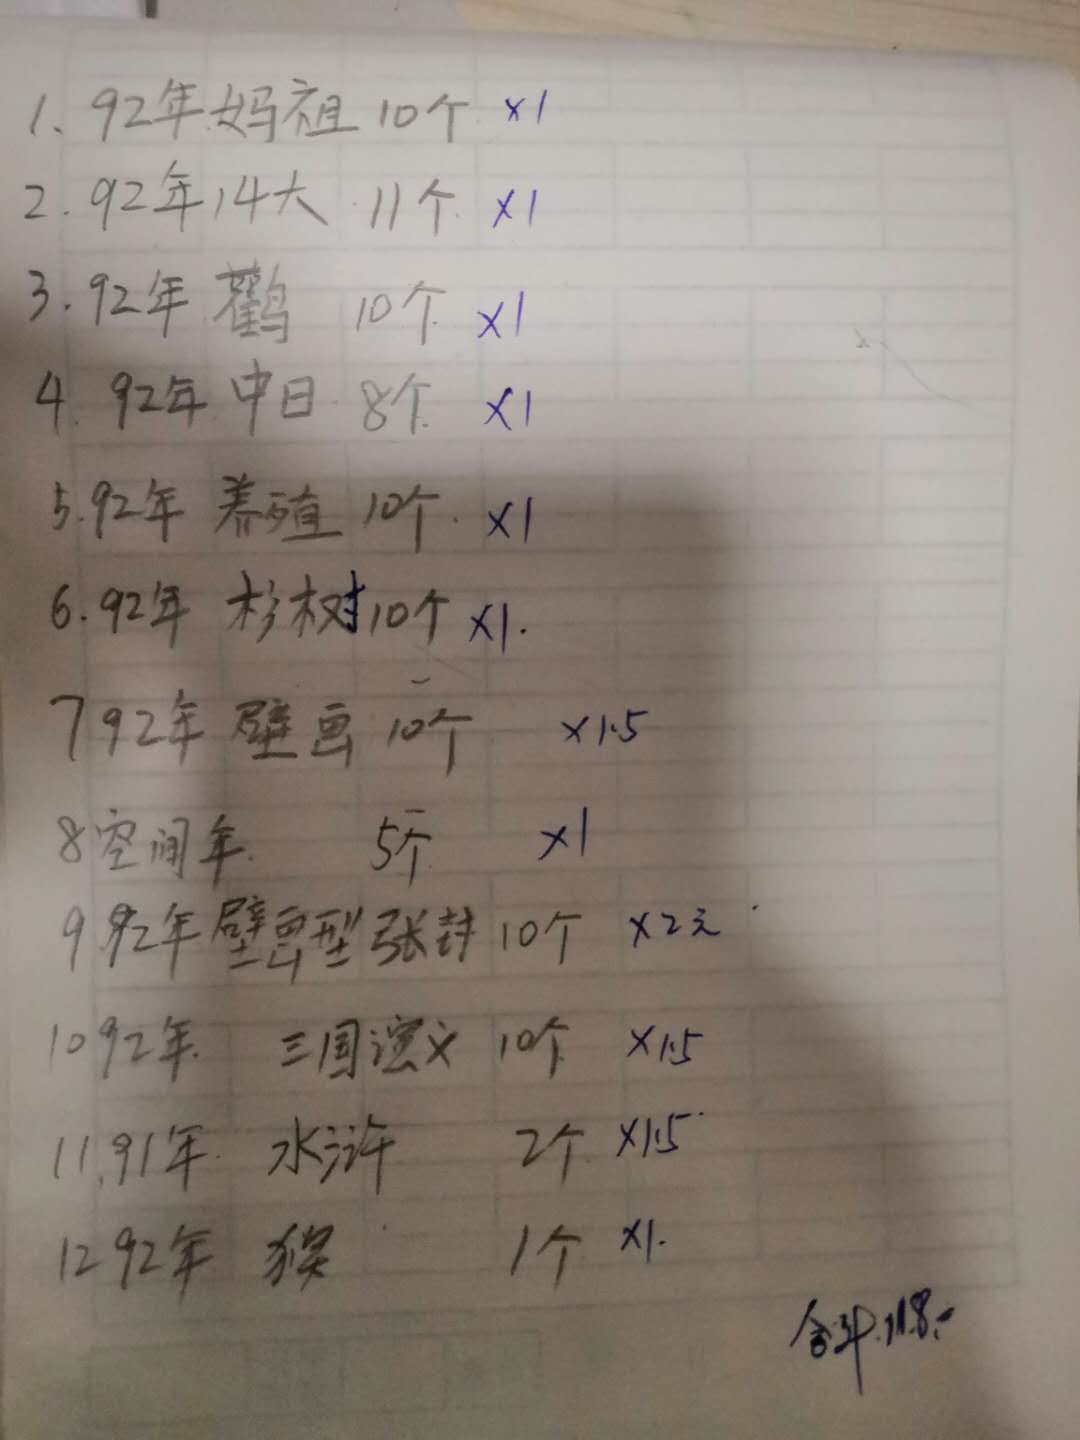 1. 92年妈祖 10个 ×1
2. 92年14大 11个 ×1
3. 92年 鹳 10个 ×1
4. 92年 中日 8个 ×1
5. 92年 养殖 10个. ×1
6. 92年 杉树 10个 ×1.
7 92年 壁画 10个 ×1.5
8 空间年. 5个 ×1
9.92年壁画型张封 10个 ×2元
10 92年. 三国演义 10个 ×1.5
11.91年. 水浒 2个 ×1.5
12 92年 猴 1个 ×1.
合计:118.